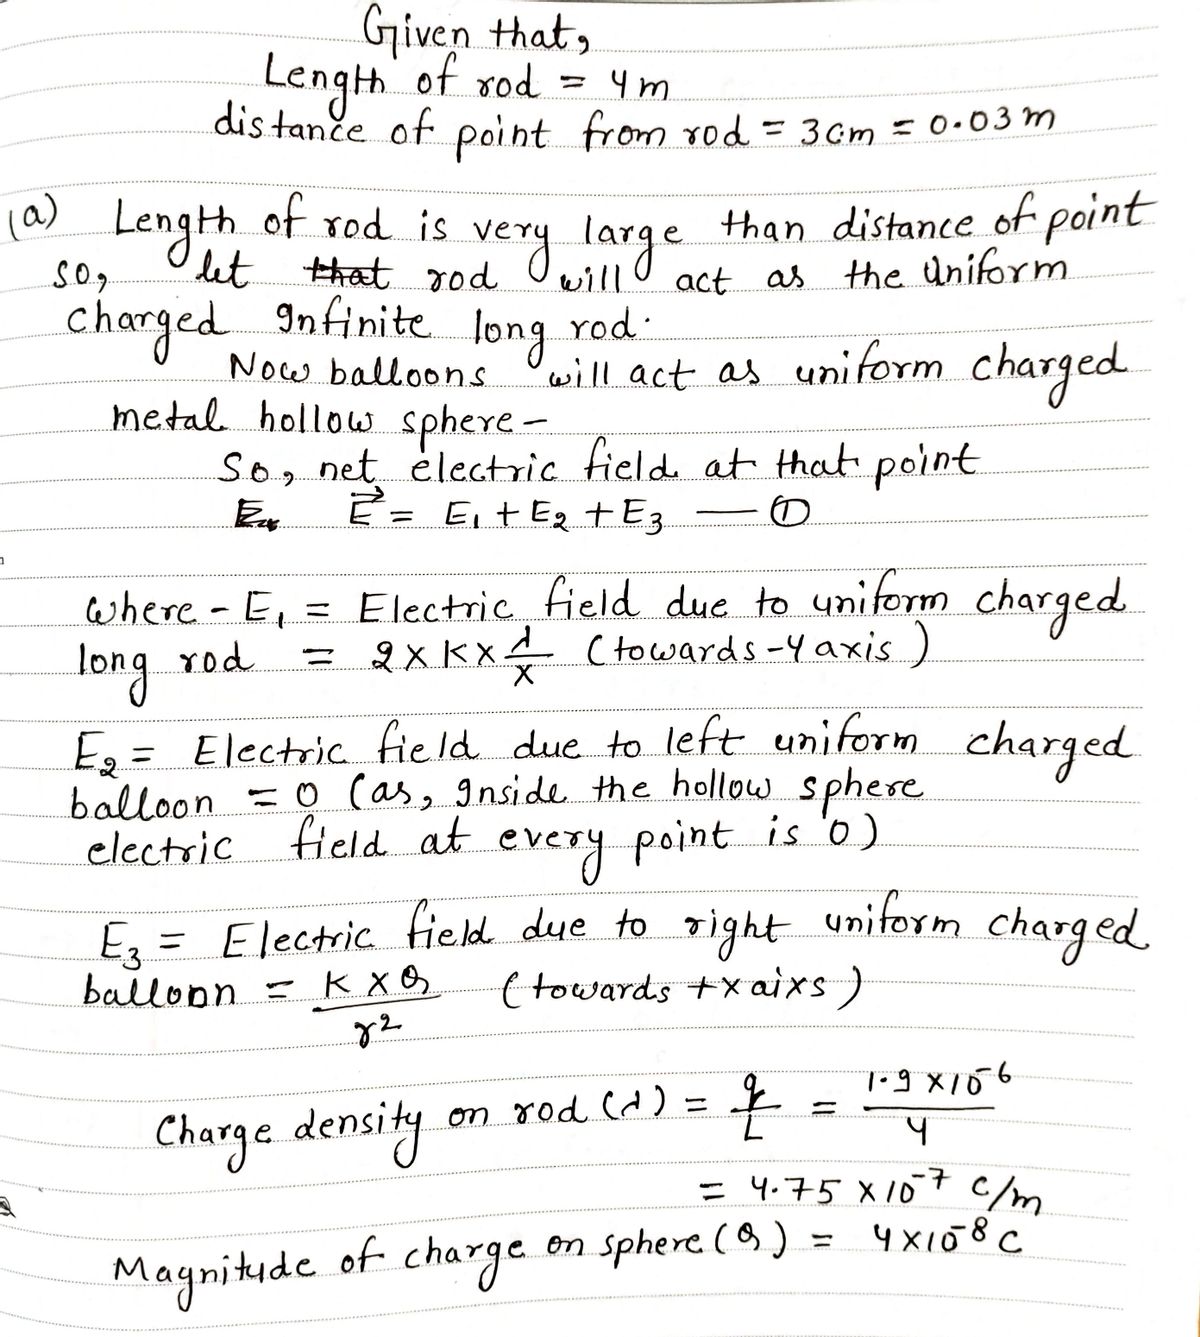 Given that,
Length of rod = 4m
distance of point from rod = 3cm = 0.03m
(a) Length of rod is very large than distance of point
so, let that rod will act as the uniform
charged Infinite long rod.
Now balloons will act as uniform charged
metal hollow sphere -
So, net electric field at that point
E⃗ = E₁ + E₂ + E₃ — ①
where - E₁ = Electric field due to uniform charged
long rod = 2 × K × λ/x (towards -y axis)
E₂ = Electric field due to left uniform charged
balloon = 0 (as, Inside the hollow sphere
electric field at every point is 0)
E₃ = Electric field due to right uniform charged
balloon = K × Q / r² (towards +x aixs)
Charge density on rod (λ) = q/L = 1.9 × 10⁻⁶ / 4
= 4.75 × 10⁻⁷ C/m
Magnitude of charge on sphere (Q) = 4 × 10⁻⁸ C